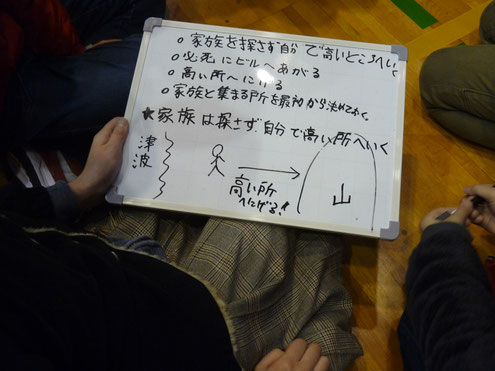 ○ 家族を探さず自分で高いところへいく
○ 必死にビルへあがる
○ 高い所へにげる
○ 家族と集まる所を最初から決めておく
★ 家族は探さず、自分で高い所へいく
津波
高い所へにげる!
山